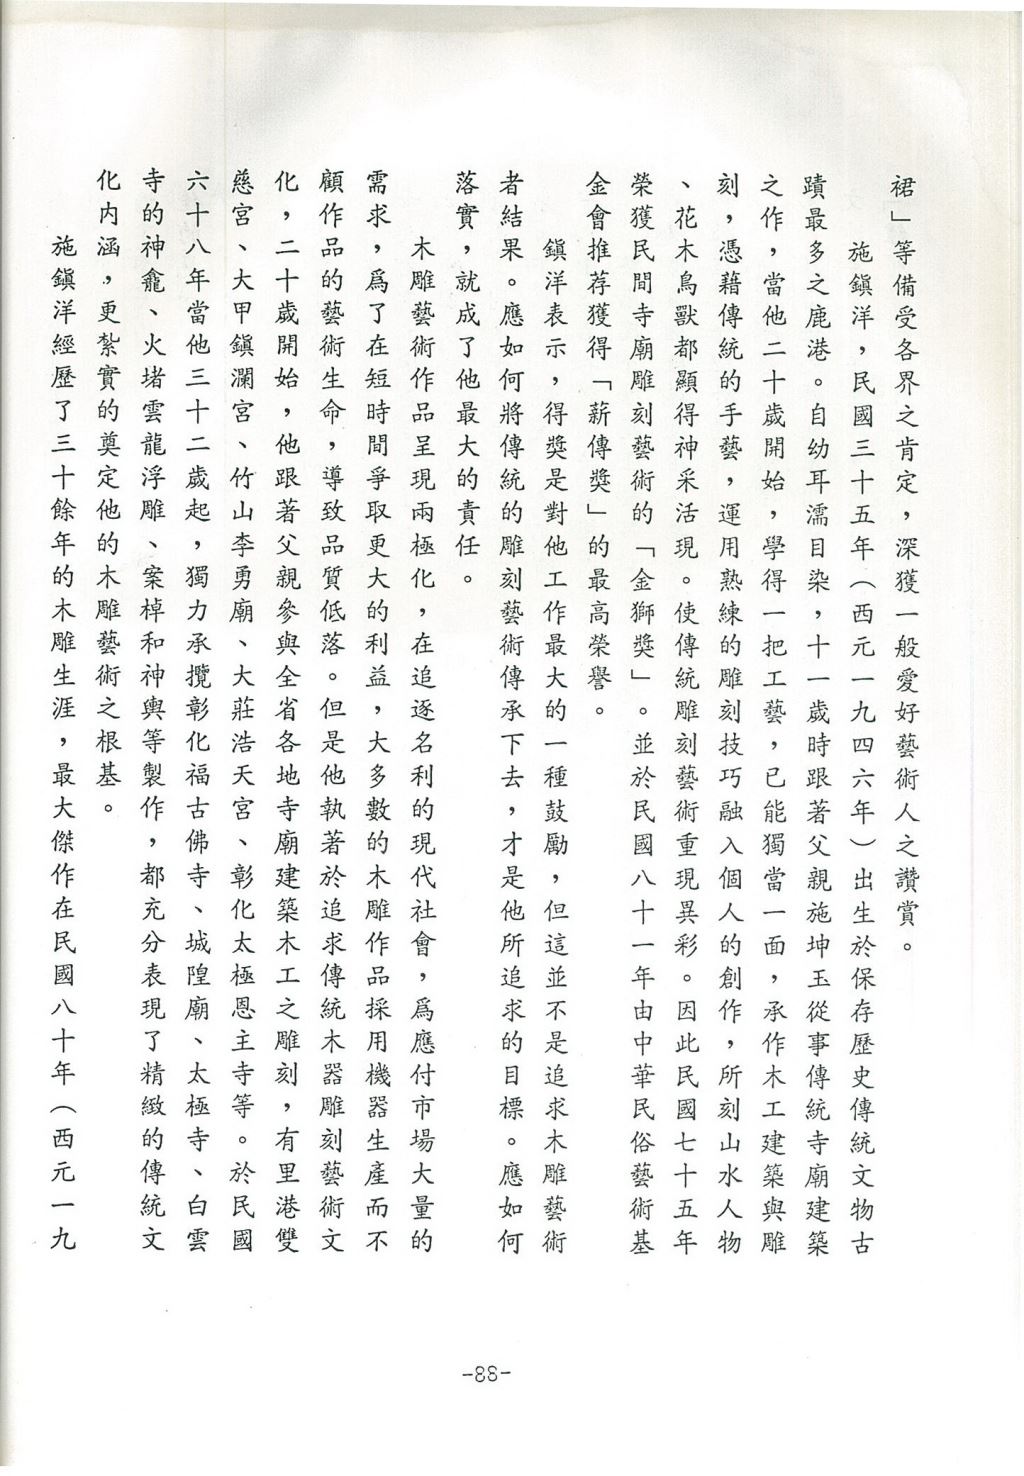 裙」等備受各界之肯定，深獲一般愛好藝術人之讚賞。
施鎮洋，民國三十五年（西元一九四六年）出生於保存歷史傳統文物古
蹟最多之鹿港。自幼耳濡目染，十一歲時跟著父親施坤玉從事傳統寺廟建築
之作，當他二十歲開始，學得一把工藝，已能獨當一面，承作木工建築與雕
刻，憑藉傳統的手藝，運用熟練的雕刻技巧融入個人的創作，所刻山水人物
、花木鳥獸都顯得神采活現。使傳統雕刻藝術重現異彩。因此民國七十五年
榮獲民間寺廟雕刻藝術的「金獅獎」。並於民國八十一年由中華民俗藝術基
金會推荐獲得「薪傳獎」的最高榮譽。
鎮洋表示，得獎是對他工作最大的一種鼓勵，但這並不是追求木雕藝術
者結果。應如何將傳統的雕刻藝術傳承下去，才是他所追求的目標。應如何
落實，就成了他最大的責任。
木雕藝術作品呈現兩極化，在追逐名利的現代社會，爲應付市場大量的
需求，爲了在短時間爭取更大的利益，大多數的木雕作品採用機器生產而不
顧作品的藝術生命，導致品質低落。但是他執著於追求傳統木器雕刻藝術文
化，二十歲開始，他跟著父親參與全省各地寺廟建築木工之雕刻，有里港雙
慈宮、大甲鎮瀾宮、竹山李勇廟、大莊浩天宮、彰化太極恩主寺等。於民國
六十八年當他三十二歲起，獨力承攬彰化福古佛寺、城隍廟、太極寺、白雲
寺的神龕、火堵雲龍浮雕、案棹和神輿等製作，都充分表現了精緻的傳統文
化內涵，更紮實的奠定他的木雕藝術之根基。
施鎮洋經歷了三十餘年的木雕生涯，最大傑作在民國八十年（西元一九
-88-